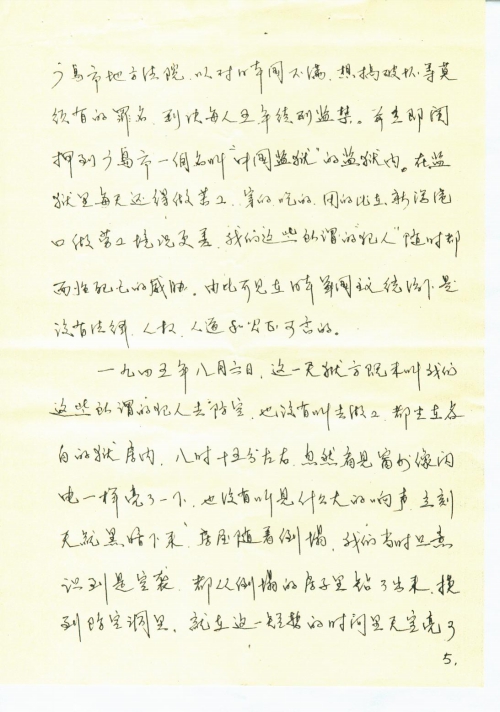 广岛市地方法院，以对日本国不满，想搞破坏等莫
须有的罪名，判决每人五年徒刑监禁。并立即関
押到广岛市一個名叫“中国监狱”的监狱内。在监
狱里每天还得做劳工，穿的吃的，用的比在新潟港
口做劳工境况更差，我们这些所谓的“犯人”随时都
面临死亡的威胁。由此可见在日本军国主义统治下是
没有法律，人权，人道和公正可言的。
一九四五年八月六日，这一天狱方既未叫我们
这些所谓的犯人去防空，也没有叫去做工，都坐在各
自的狱房内，八时十五分左右，忽然看见窗外像闪
电一样亮了一下，也没有听见什么大的响声，立刻
天就黑暗下来，房屋随着倒塌，我们当时只意
识到是空袭，都从倒塌的房子里钻了出来，摸
到防空洞里，就在这一短暂的时间里天空亮了
5.